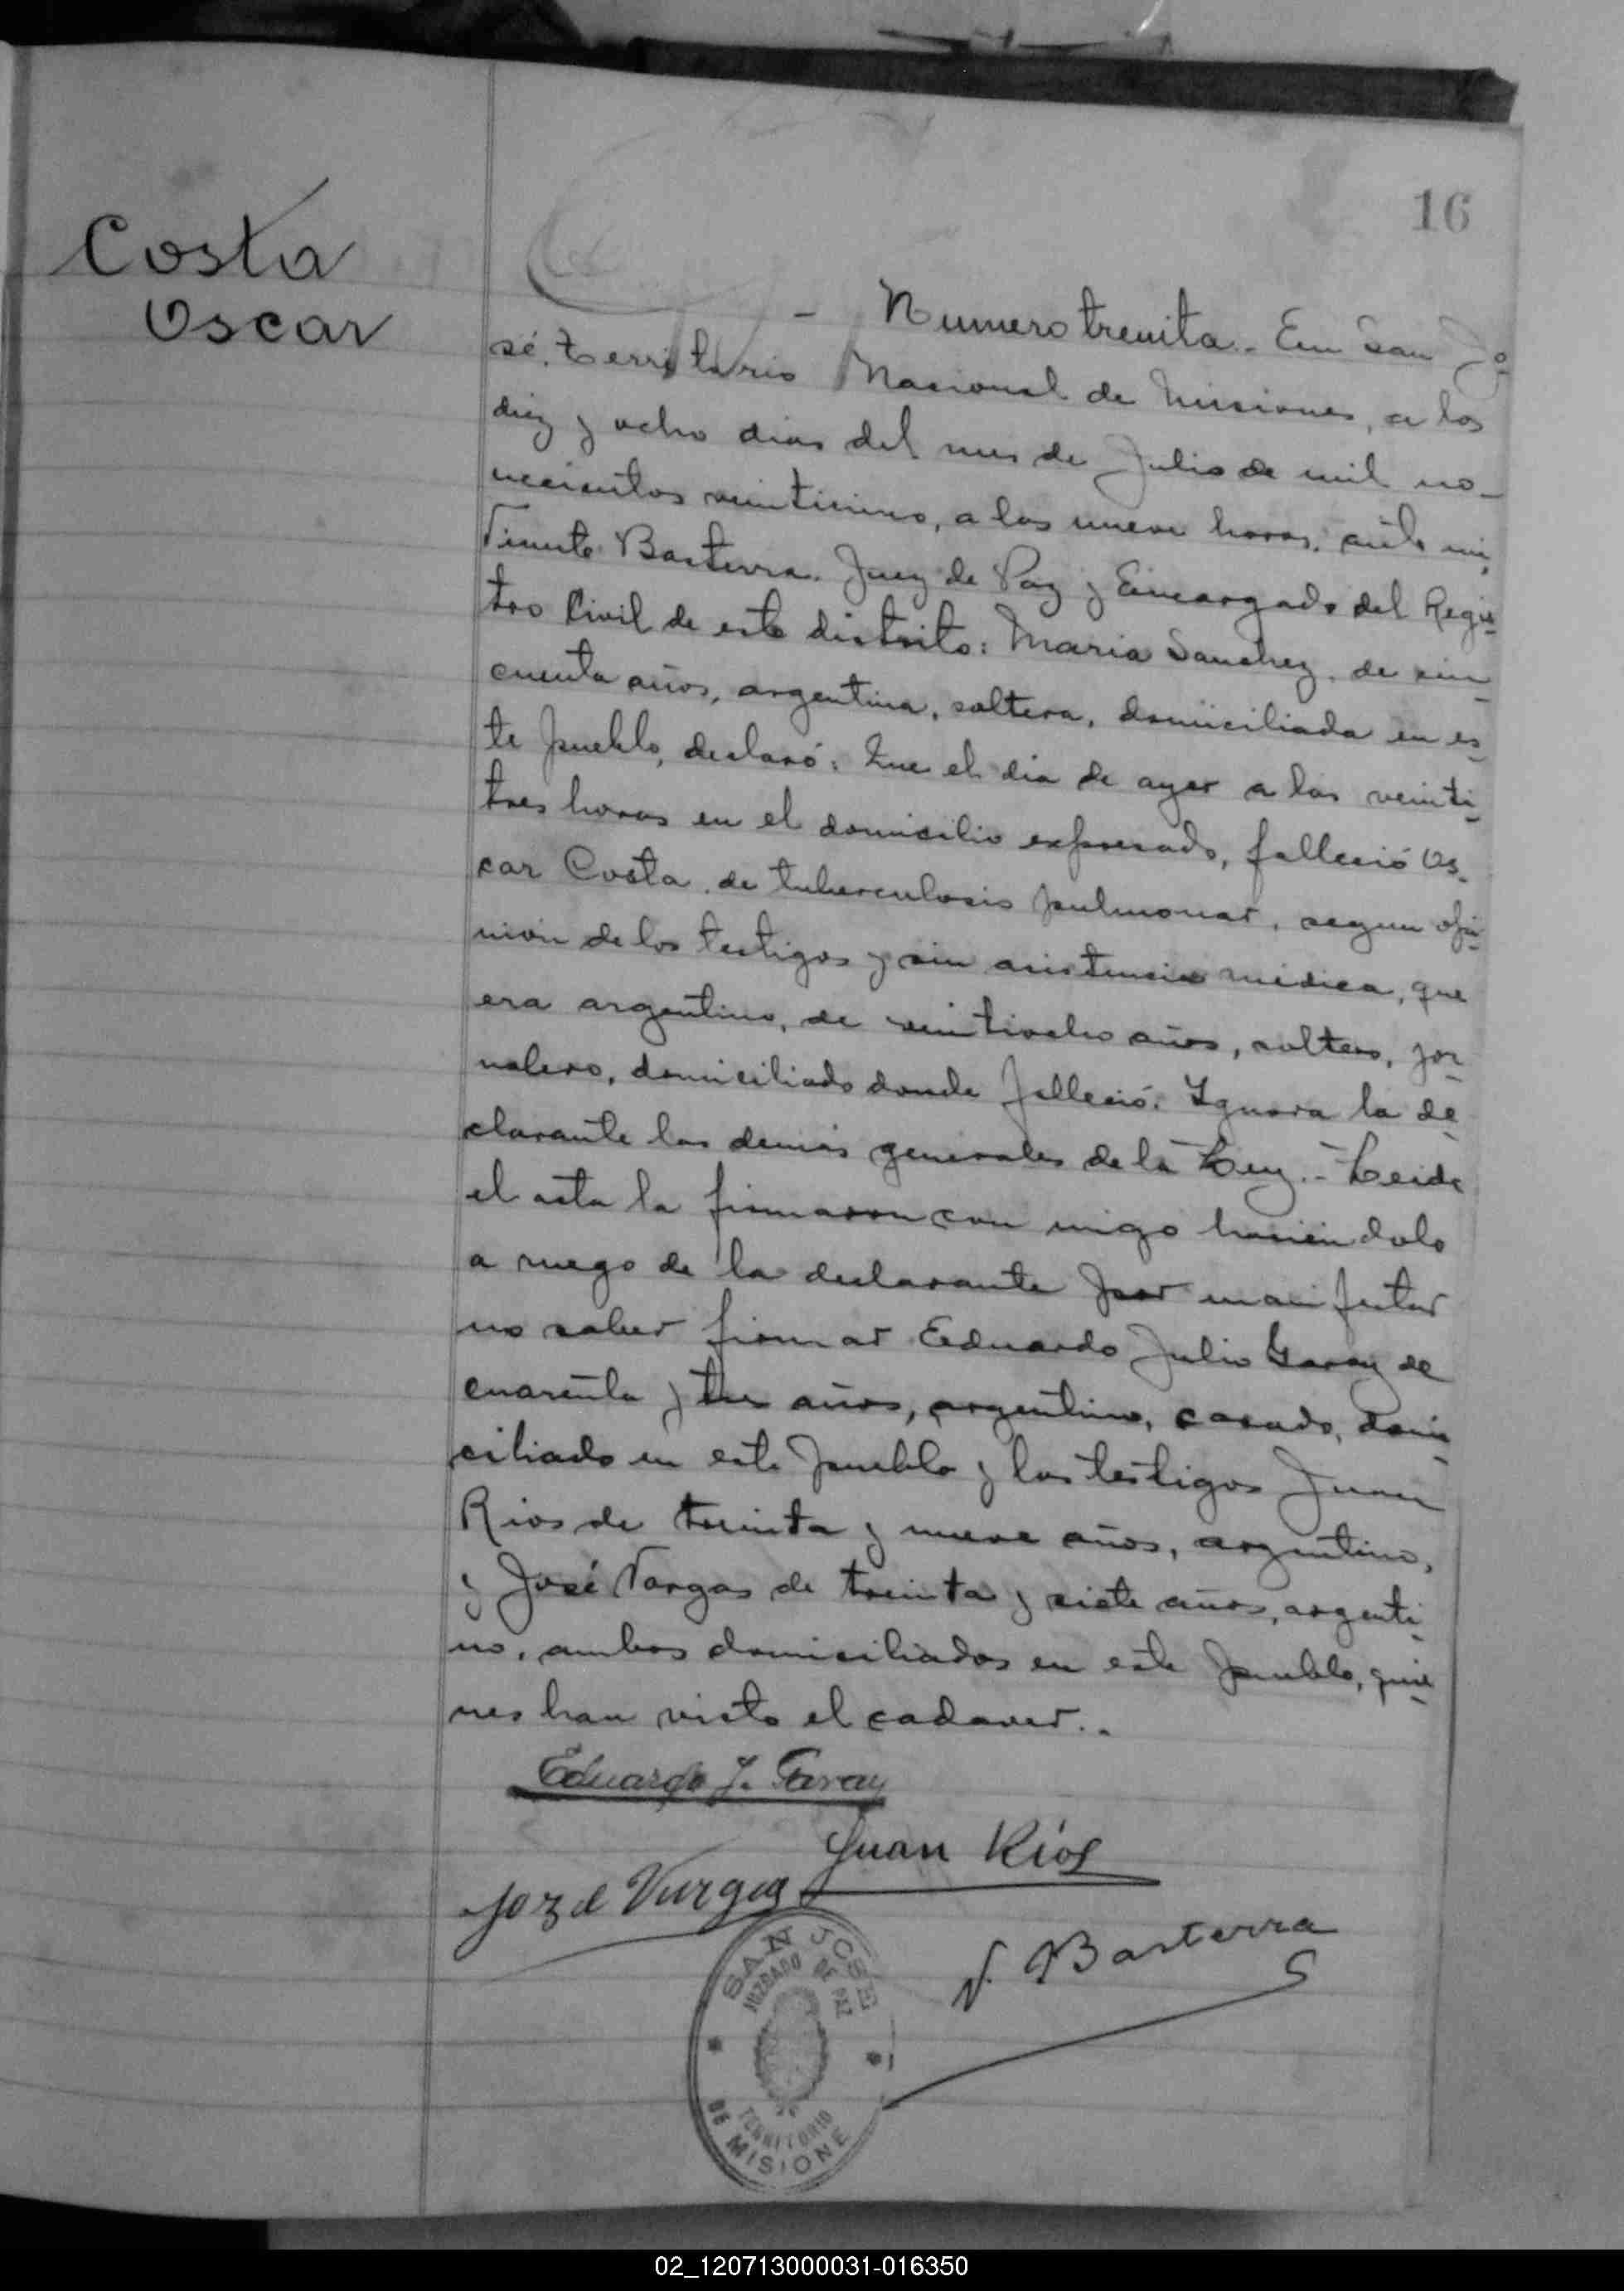 16
Costa
Oscar
- Numero treinta.- En San Jo
sé, Territorio Nacional de Misiones, a los
diez y ocho dias del mes de Julio de mil no-
vecientos veinticinco, a las nueve horas, ante mi,
Basterra, Juez de Paz y Encargado del Regis-
tro Civil de este distrito: Maria Sanchez, de cin-
cuenta años, argentina, soltera, domiciliada en es-
te pueblo, declaró: Que el dia de ayer a las veinti-
tres horas en el domicilio expresado, falleció Os-
car Costa, de tuberculosis pulmonar, segun opi-
nión de los testigos y sin asistencia médica, que
era argentino, de veintiocho años, soltero, jor-
nalero, domiciliado donde falleció. Ignora la de-
clarante las demás generales de la Ley.- Leida
el acta la firmaron con migo haciéndolo
a ruego de la declarante por manifestar
no saber firmar Eduardo Julio Garay de
cuarenta y tres años, argentino, casado, domi-
ciliado en este pueblo y los testigos Juan
Rios de treinta y nueve años, argentino,
y José Vargas de treinta y siete años, argenti-
no, ambos domiciliados en este pueblo, quie-
nes han visto el cadaver..
Eduardo J. Garay
Juan Ríos
Joze Vargas
V. Basterra
SAN JOSE
JUZGADO DE PAZ
TERRITORIO
DE MISIONE
02_120713000031-016350